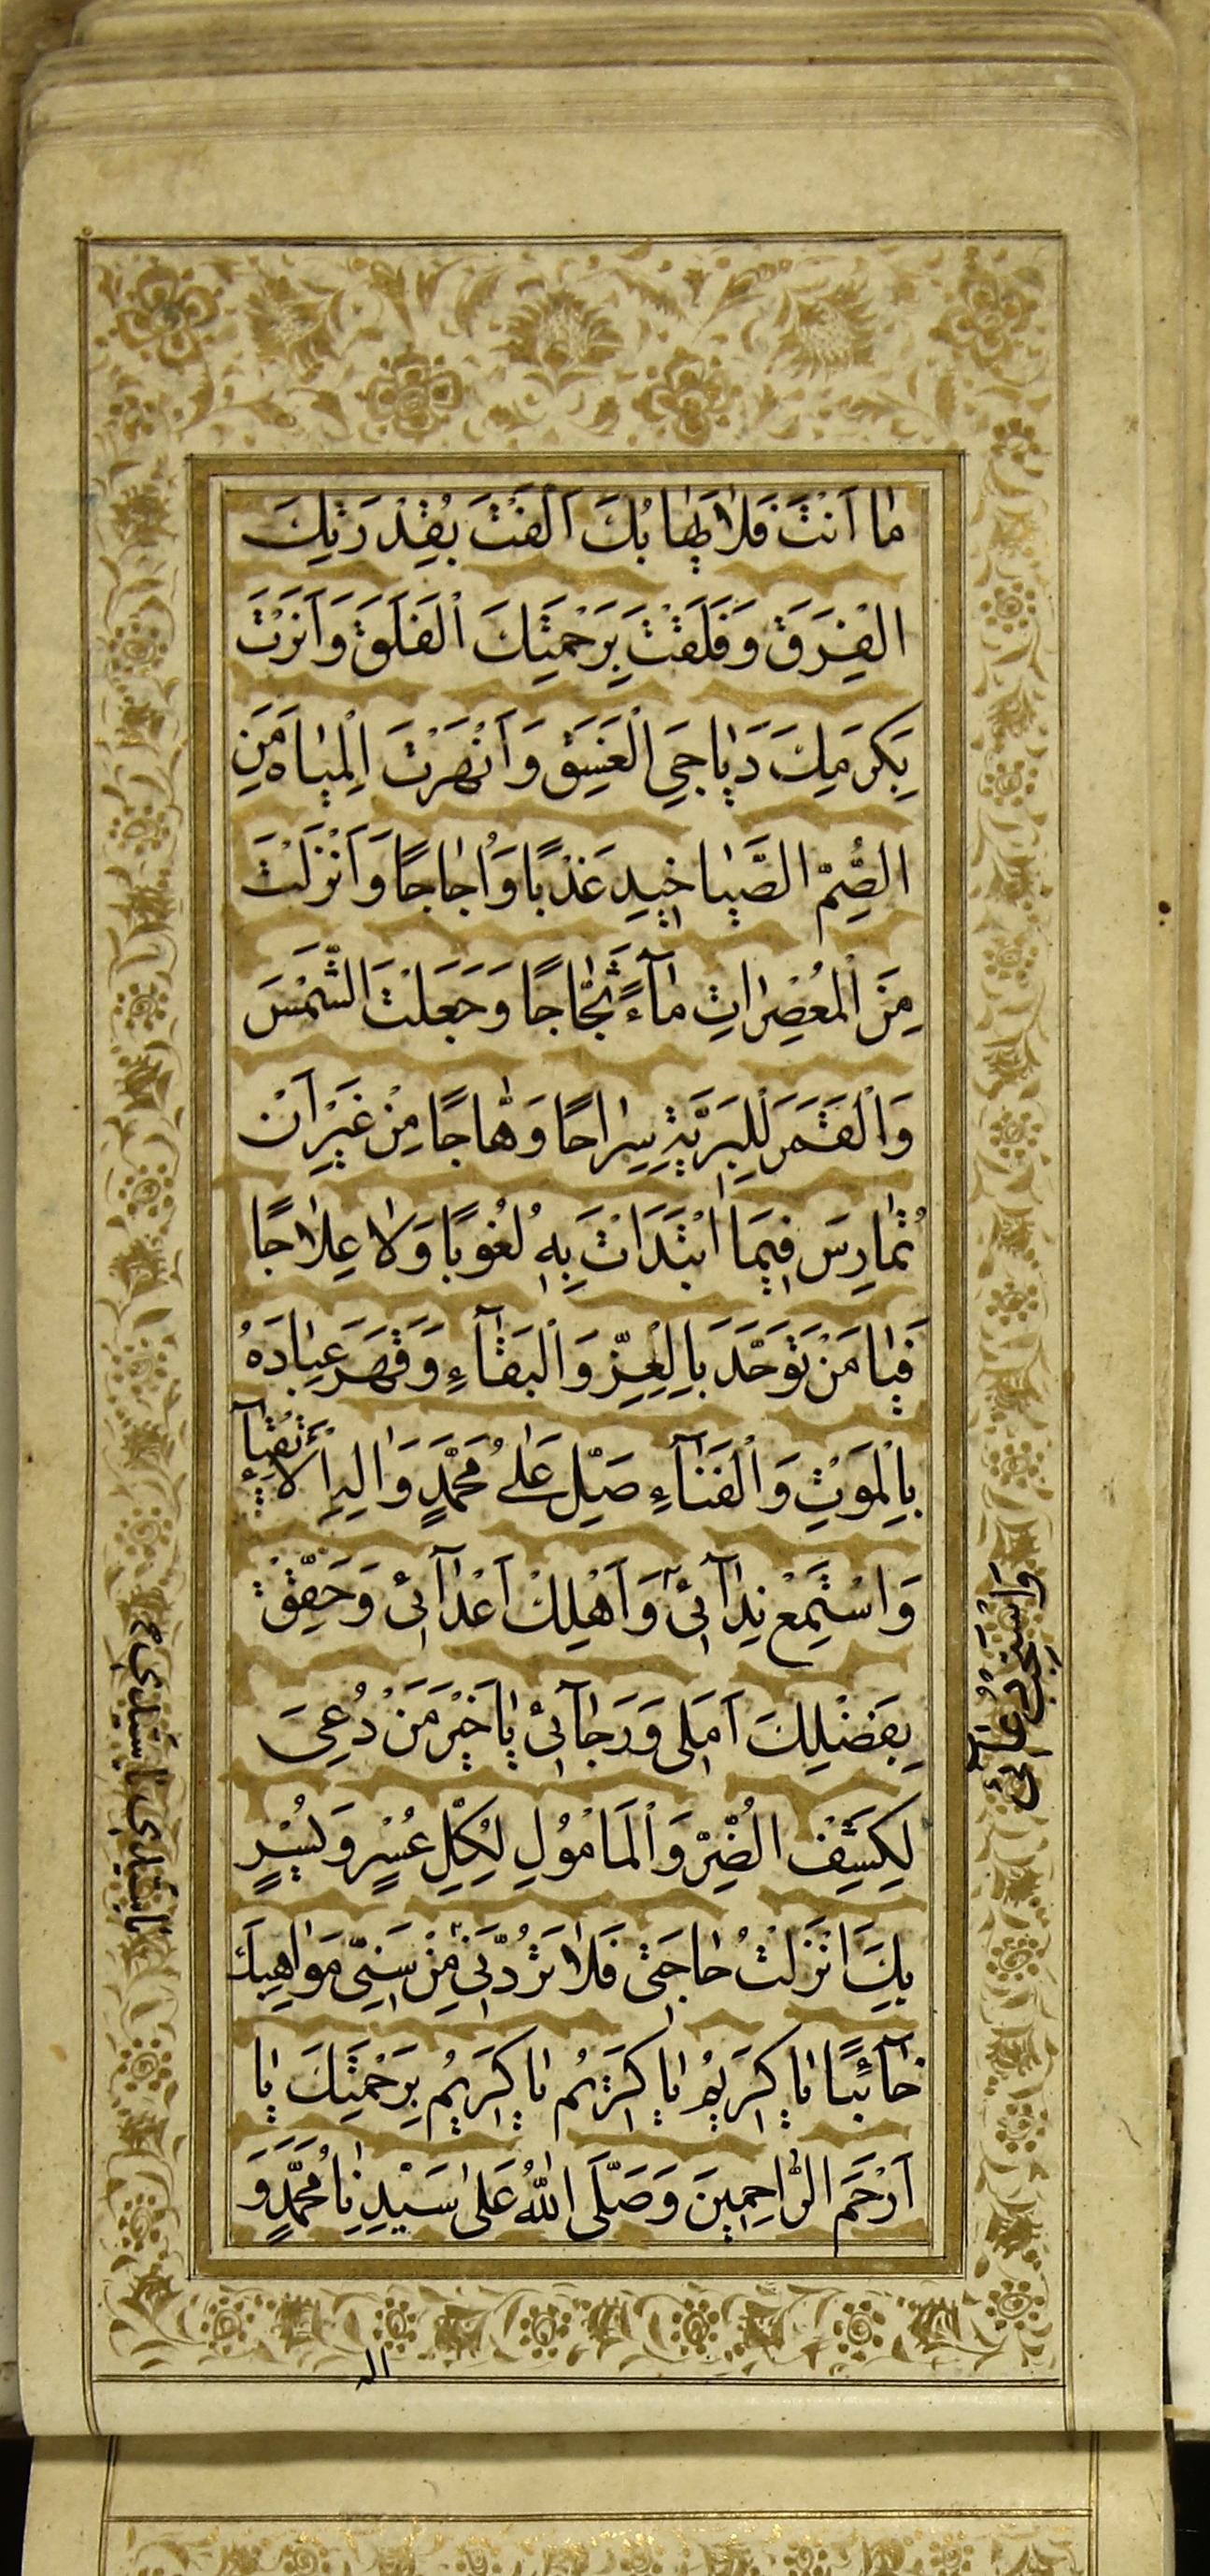 مٰا اَنْتَ فَلٰا يَهٰابُكَ اَلَّفْتَ بِقُدْرَتِكَ
الْفِرَقَ وَفَلَقْتَ بِرَحْمَتِكَ الْفَلَقَ وَاَنَرْتَ
بِكَرَمِكَ دَيٰاجِيَ الْغَسَقِ وَاَنْهَرْتَ الْمِيٰاهَ مِنَ
الصُّمِّ الصَّيٰاخِيدِ عَذْبًا وَاُجٰاجًا وَاَنْزَلْتَ
مِنَ الْمُعْصِرٰاتِ مٰآءً ثَجّٰاجًا وَجَعَلْتَ الشَّمْسَ
وَالْقَمَرَ لِلْبَرِيَّةِ سِرٰاجًا وَهّٰاجًا مِنْ غَيْرِ اَنْ
تُمٰارِسَ فِيمَا ابْتَدَاْتَ بِهِ لُغُوبًا وَلٰا عِلٰاجًا
فَيٰا مَنْ تَوَحَّدَ بِالْعِزِّ وَالْبَقٰآءِ وَقَهَرَ عِبٰادَهُ
بِالْمَوْتِ وَالْفَنٰآءِ صَلِّ عَلٰى مُحَمَّدٍ وَالِهِ الْاَتْقِيٰآءِ
وَاسْتَمِعْ نِدٰآئِى وَاَهْلِكْ اَعْدٰآئِى وَحَقِّقْ
وَاسْتَجِبْ دُعٰآئِى
بِفَضْلِكَ اَمَلِى وَرَجٰآئِى يٰا خَيْرَ مَنْ دُعِىَ
لِكَشْفِ الضُّرِّ وَالْمَاْمُولِ لِكُلِّ عُسْرٍ وَيُسْرٍ
بِكَ اَنْزَلْتُ حٰاجَتِى فَلٰا تَرُدَّنِى مِنْ سَنِىِّ مَوٰاهِبِكَ
يٰا سَيِّدِى يٰا سَيِّدِى
خٰآئِبًا يٰا كَرِيمُ يٰا كَرِيمُ يٰا كَرِيمُ بِرَحْمَتِكَ يٰا
اَرْحَمَ الرّٰاحِمِينَ وَصَلَّى اللّٰهُ عَلٰى سَيِّدِنٰا مُحَمَّدٍ وَ
اله